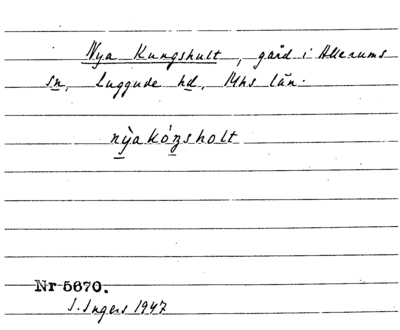 Nya Kungshult, gård i Allerums
sn, Luggude hd, Mhs län.
nỳakóŋsholt
Nr 5670.
I. Ingers 1947